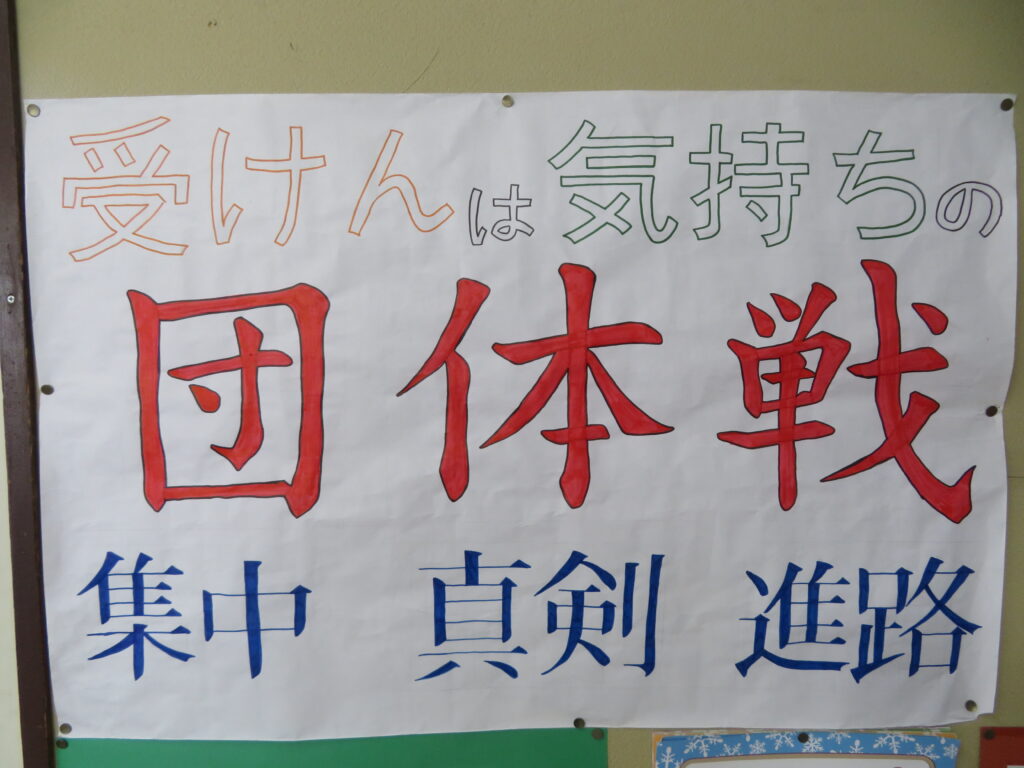 受けんは気持ちの
団体戦
集中 真剣 進路